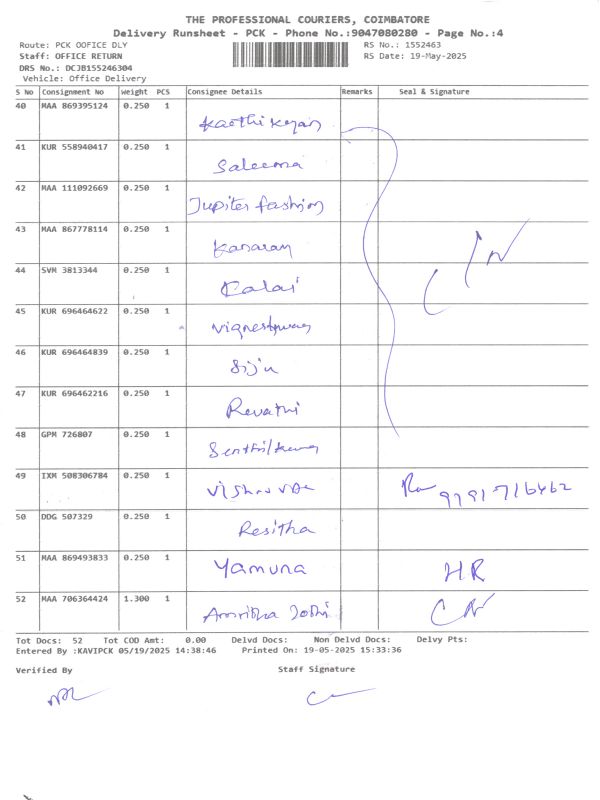 THE PROFESSIONAL COURIERS, COIMBATORE
Delivery Runsheet - PCK - Phone No.:9047080280 - Page No.:4
Route: PCK OOFICE DLY RS No.: 1552463
Staff: OFFICE RETURN RS Date: 19-May-2025
DRS No.: DCJB155246304
Vehicle: Office Delivery
S No Consignment No Weight PCS Consignee Details Remarks Seal & Signature
40 MAA 869395124 0.250 1
Kaethikeyan
41 KUR 558940417 0.250 1
Saleema
42 MAA 111092669 0.250 1
Jupiter fashion
43 MAA 867778114 0.250 1
Kanaran
44 SVM 3813344 0.250 1
Kalai
45 KUR 696464622 0.250 1
Vigneshwar
46 KUR 696464839 0.250 1
Siju
47 KUR 696462216 0.250 1
Revathi
48 GPM 726807 0.250 1
49 IXM 508306784 0.250 1
9791716462
50 DDG 507329 0.250 1
Resitha
51 MAA 869493833 0.250 1
Yamuna HR
52 MAA 706364424 1.300 1
Amritha Jothi
Tot Docs: 52 Tot COD Amt: 0.00 Delvd Docs: Non Delvd Docs: Delvy Pts:
Entered By :KAVIPCK 05/19/2025 14:38:46 Printed On: 19-05-2025 15:33:36
Verified By Staff Signature